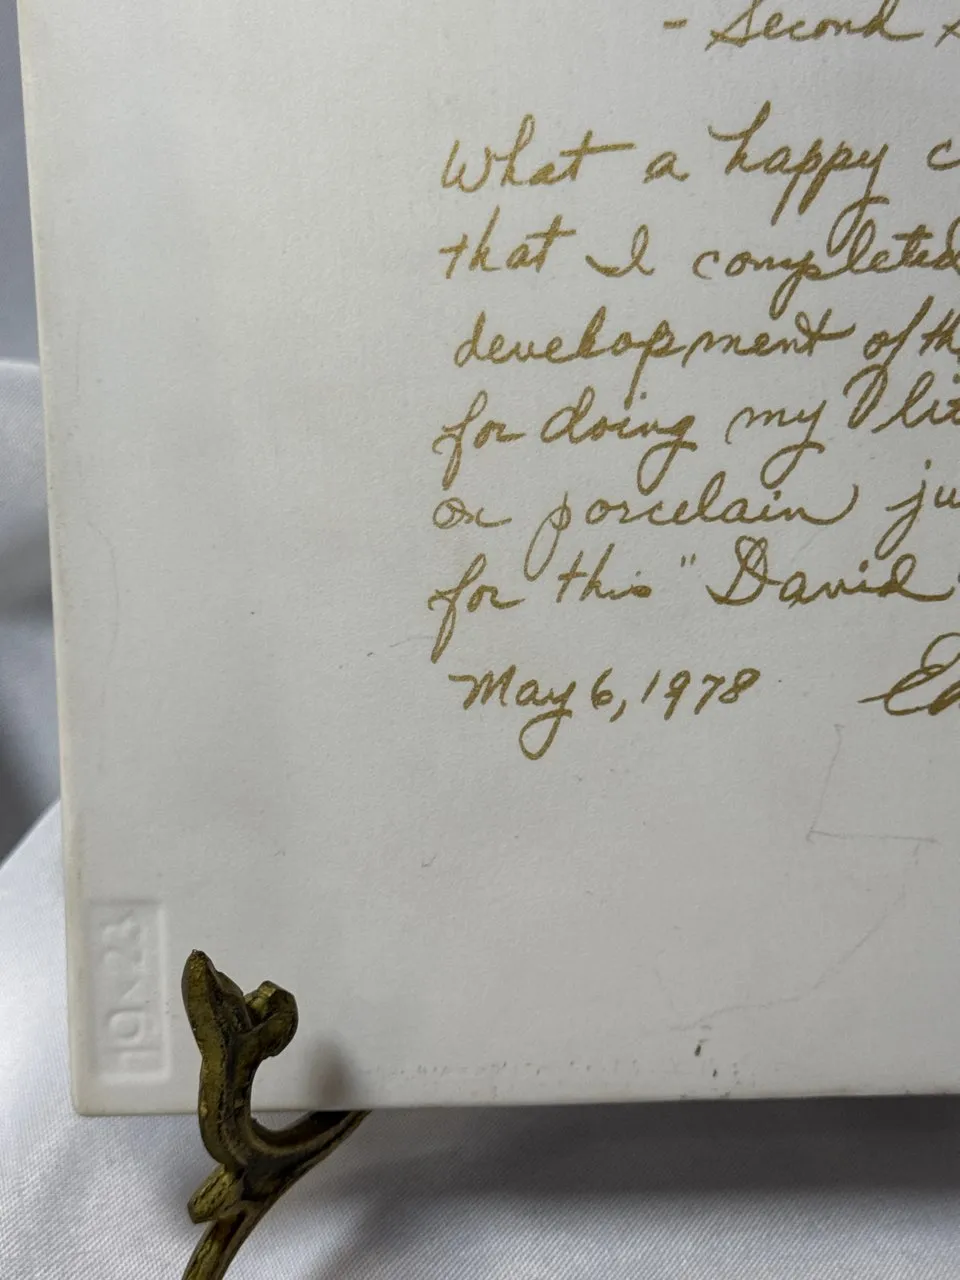 - Second
What a happy c
that I completed
development of th
for doing my lit
on porcelain ju
for this "David
May 6, 1978 Ed
1978